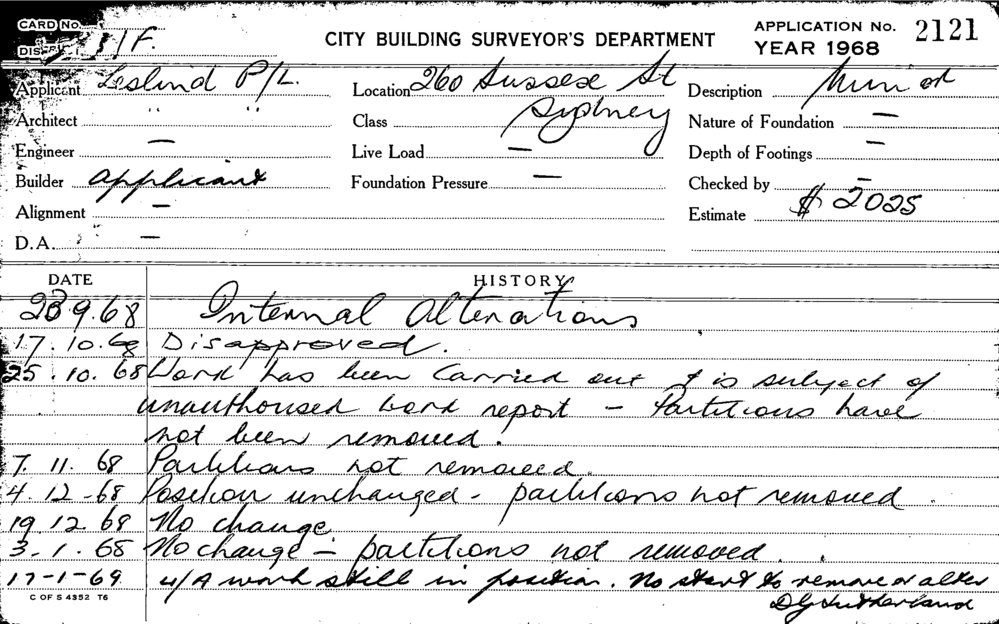 CARD No.
DIS
F.
CITY BUILDING SURVEYOR'S DEPARTMENT
APPLICATION No. 2121
YEAR 1968
Applicant Leslind P/L.
Location 260 Sussex St
Description Minor
Architect " "
Class Sydney
Nature of Foundation —
Engineer —
Live Load —
Depth of Footings —
Builder applicant
Foundation Pressure —
Checked by —
Alignment —
Estimate $ 2025
D.A. —
DATE HISTORY
23 9.68 Internal Alterations
17.10.68 Disapproved.
25.10.68 Work has been carried out & is subject of
unauthorised work report – Partitions have
not been removed.
7.11.68 Partitions not removed.
4.12-68 Position unchanged - partitions not removed.
19.12.68 No change.
3.1.68 No change – partitions not removed.
17-1-69 u/A work still in position. No start to remove or alter
DG Sutherland
C OF S 4352 T6